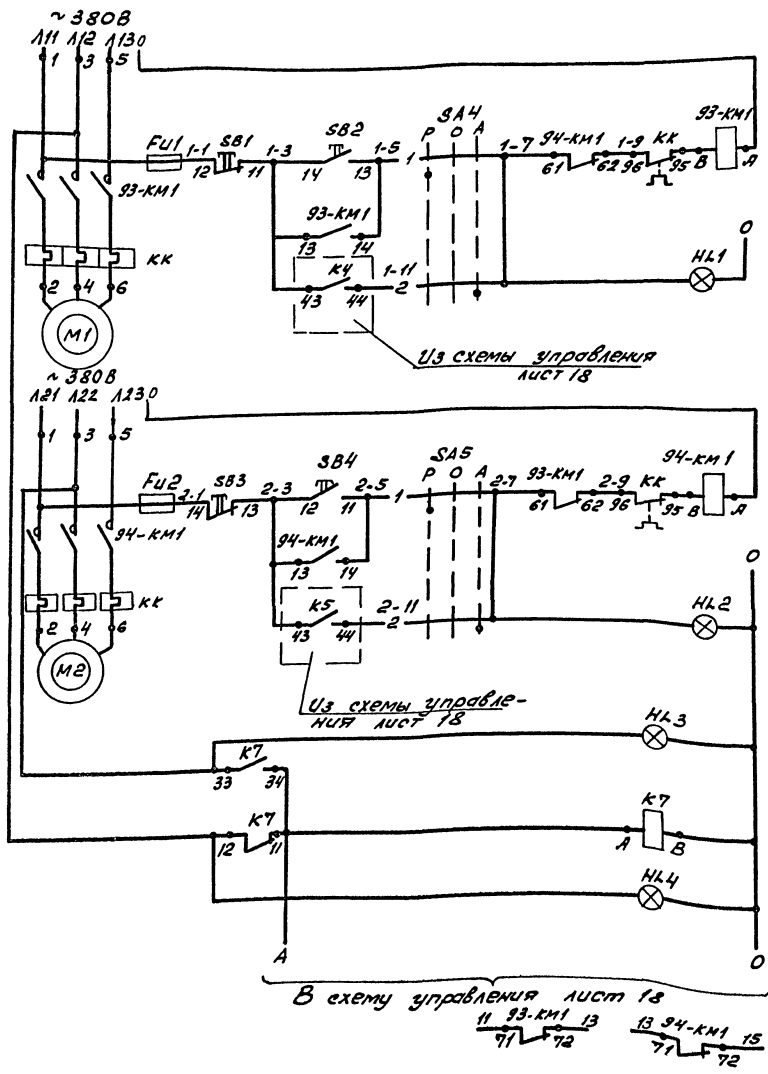 ~380В
Л11 Л12 Л13 0
1 3 5
Fu1 1-1 SB1 1-3 SB2 1-5 SA4 1-7 94-КМ1 1-9 КК 93-КМ1
Р О А
12 11 14 13 1 61 62 96 95 В А
93-КМ1
93-КМ1
13 14
КК
К4 1-11
43 44 2
HL1 0
2 4 6
М1
Из схемы управления
лист 18
~380В
Л21 Л22 Л23 0
1 3 5
Fu2 2-1 SB3 2-3 SB4 2-5 SA5 2-7 93-КМ1 2-9 КК 94-КМ1
Р О А
14 13 12 11 1 61 62 96 95 В А
94-КМ1
94-КМ1
13 14
0
КК
К5 2-11
43 44 2
HL2
2 4 6
М2
Из схемы управле-
ния лист 18
HL3
К7
33 34
К7
12 11
К7
А В
HL4
А 0
В схему управления лист 18
11 93-КМ1 13
71 72
13 94-КМ1 15
71 72